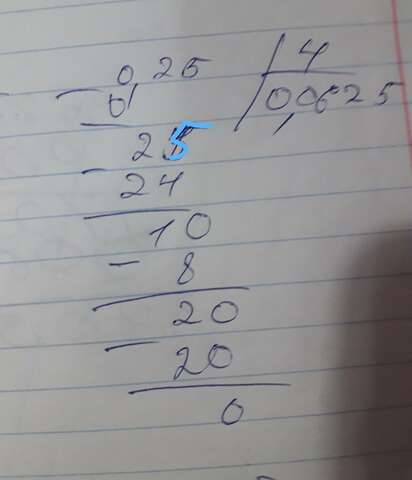 0,25 4
0 0,0625
25
24
10
- 8
20
- 20
0